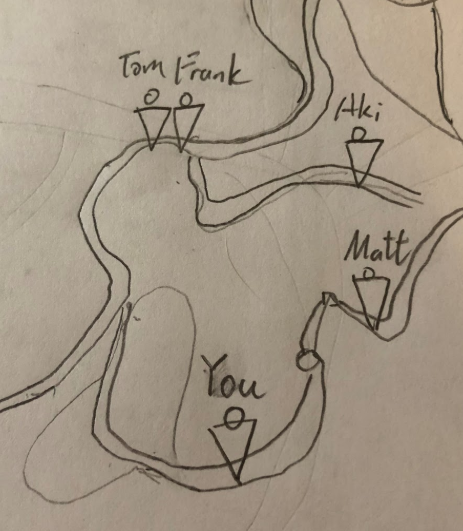 Tom Frank
Aki
Matt
You